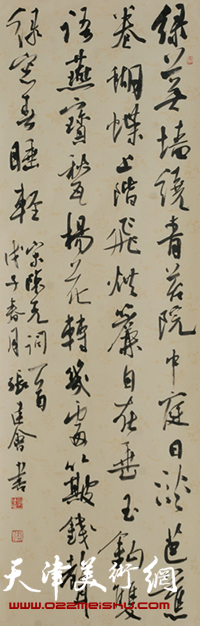 綠蕪墻繞青苔院中庭日淡芭蕉
卷蝴蝶上階飛烘簾自在垂玉鈎雙
語燕寶甃楊花轉幾處簸錢聲
綠窗春睡輕 宋陳克詞一首
戊子春月張建會書
天津美術網
www.022meishu.com